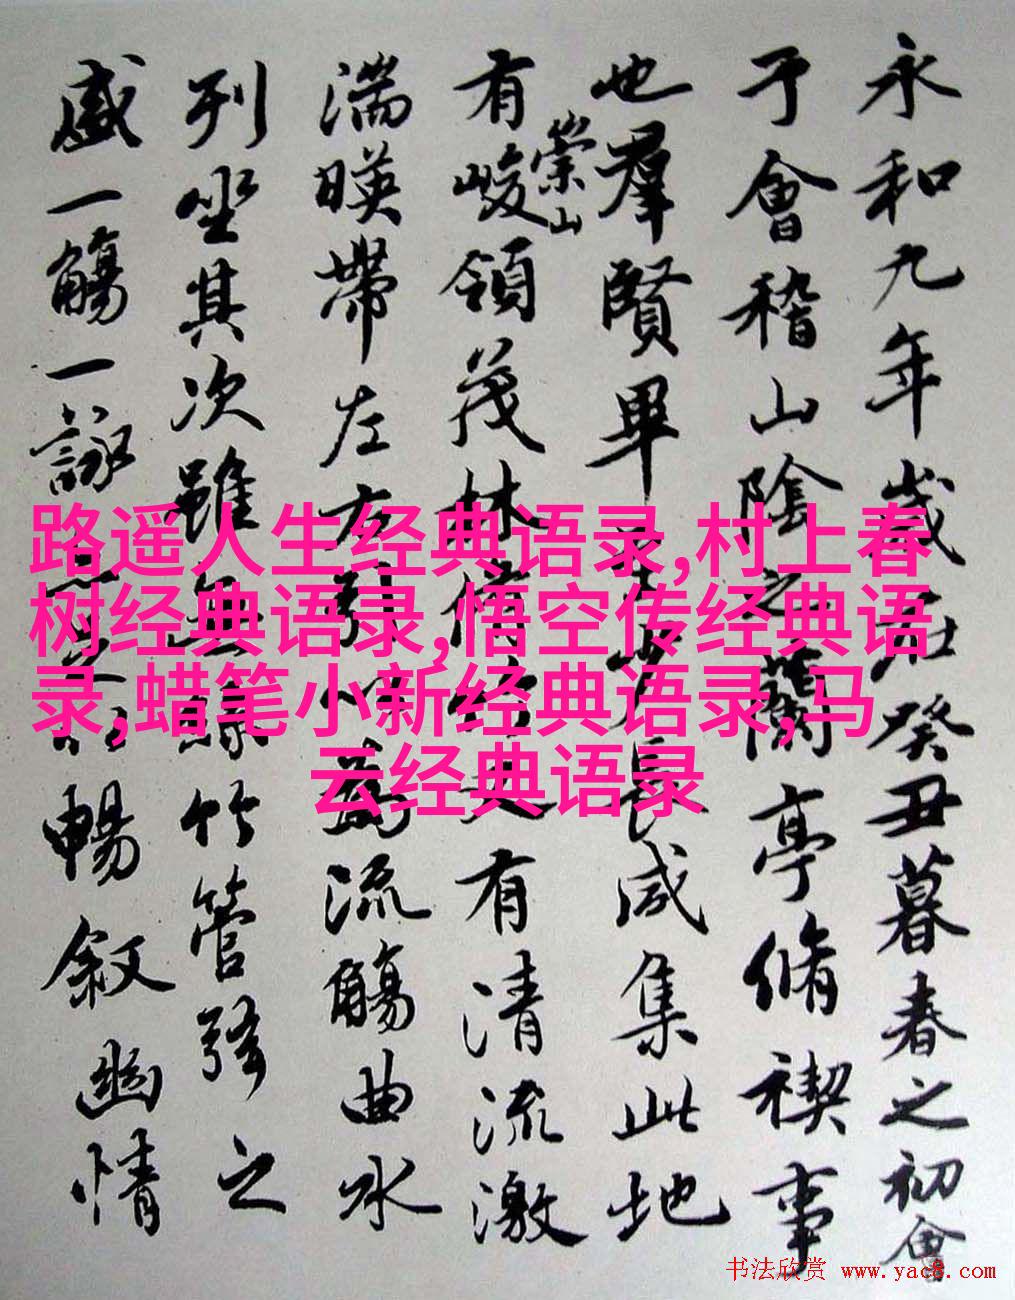 永和九年歲在癸丑暮春之初會
于會稽山陰之蘭亭脩禊事
也羣賢畢至少長咸集此地
有崇山峻領茂林脩竹又有清流激
湍暎帶左右引以為流觴曲水
列坐其次雖無絲竹管弦之
盛一觴一詠亦足以暢敘幽情
路遥人生经典语录,村上春
树经典语录,悟空传经典语
录,蜡笔小新经典语录,马
云经典语录
书法欣赏 www.yac8.com